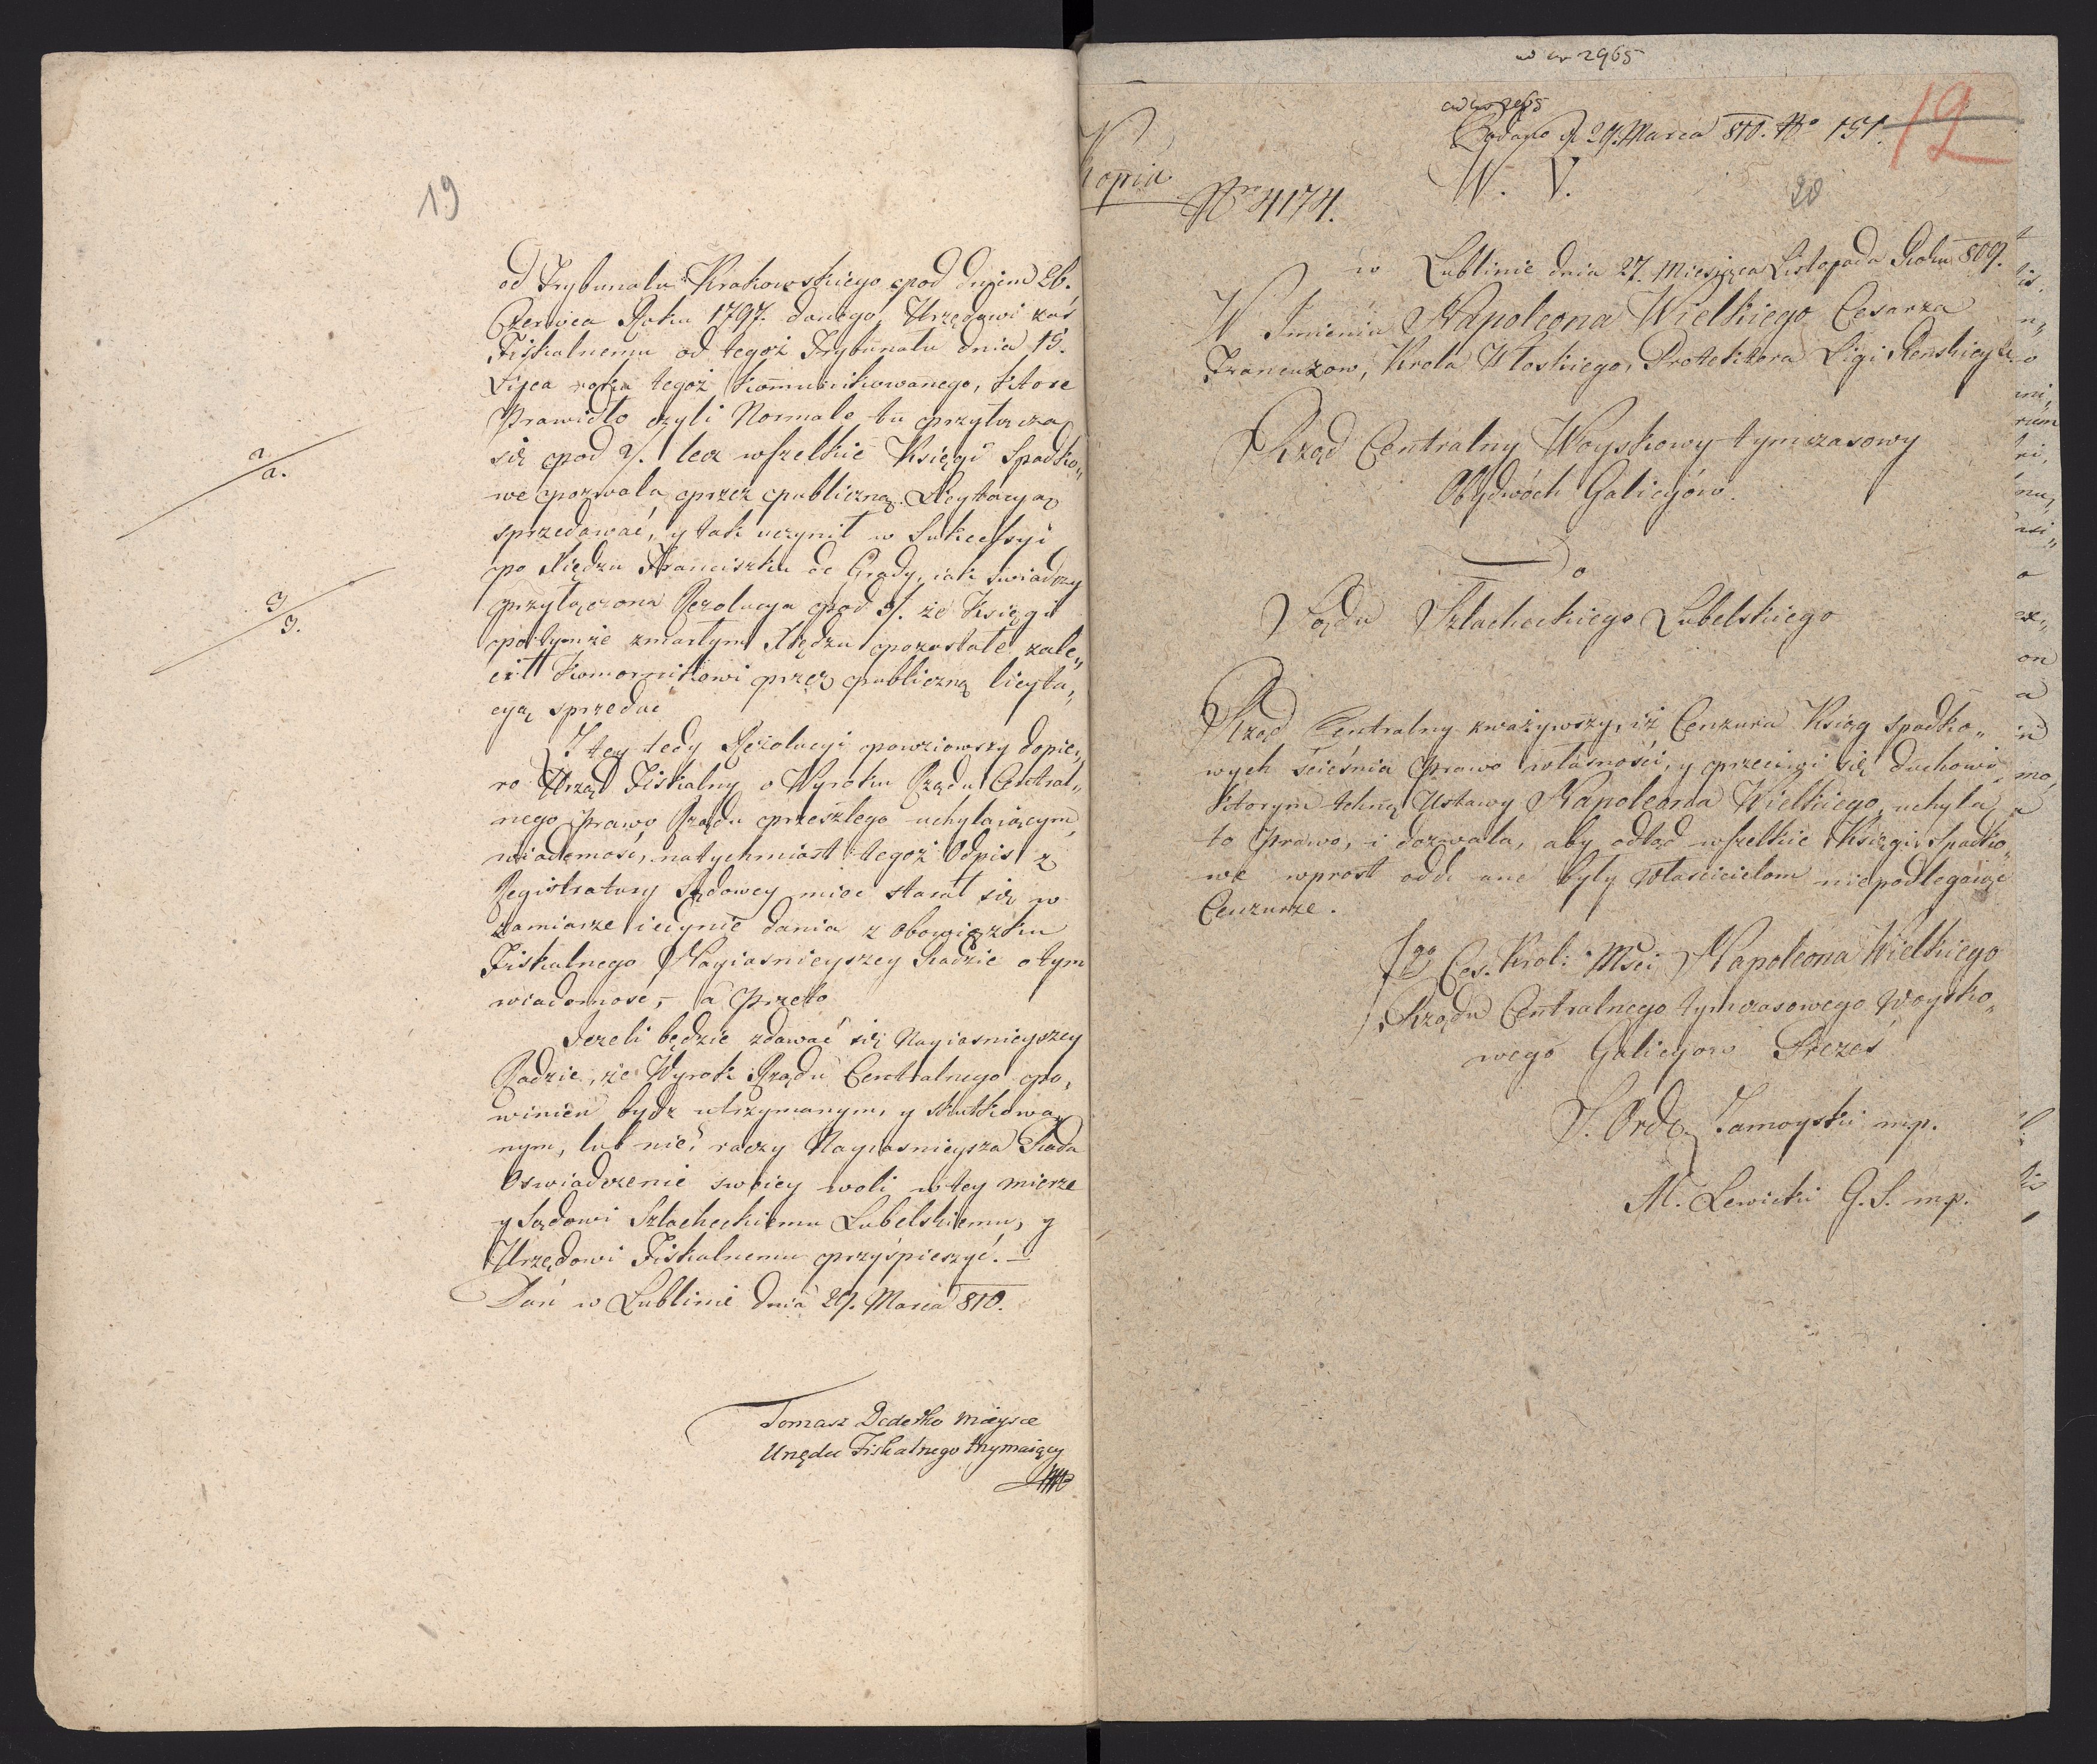 19
od Trybunału Krakowskiego pod dniem 26.
Czerwca Roku 1797. danego, Urzędowi zaś
Fiskalnemu od tegoż Trybunału dnia 15.
Lipca roku tegoż kom̃unikowanego, ktore
Prawidło czyli Normale tu przyłącza
się pod 2/. lecz wszelkie Księgi Spadko„
we pozwala przez publiczną Licytacyą
sprzedawać, y tak uczynił w Sukcessyi
po Xiędzu Franciszku de Grady, iak swiadczy
przyłączona Rezolucya pod 3/. że Księgi
po tymże zmarłym Xiędzu pozostałe zale„
cił Komornikowi przez publiczną licyta„
cyą sprzedać
2/2.
3/3.
Z tey tedy Rezolucyi powziowszy dopie„
ro Urząd Fiskalny o Wyroku Rządu Central„
nego Prawo Rządu przeszłego uchylaiącym
wiadomość, natychmiast tegoż Odpis z
Registratury Sądowey miec starał się w
zamiarze iedynie dania z Obowiązku
Fiskalnego Nayiasnieyszey Radzie o tym
wiadomosc, – a Przeto
Jeżeli będzie zdawać się Nayiasnieyszey
Radzie, że Wyrok Rządu Centralnego po„
winien bydz utrzymanym, y skutkowa„
nym, lub nie, raczy Nayiasnieysza Rada
Oswiadczenie swoiey woli w tey mierze
y Sądowi Szlacheckiemu Lubelskiemu, y
Urzędowi Fiskalnemu przyśpieszyć. –
Dań w Lublinie dnia 29. Marca 810.
Tomasz Dederko mieysce
Urzędu Fiskalnego trzymaiący
ad nr 2965
ad nr 2965
Podano d. 29. Marca 810. No 151.
12
Kopia
Nro 4174.
W. V.
20
w Lublinie dnia 27. Miesiąca Listopada Roku 809.
W Imieniu Napoleona Wielkiego Cesarza
Francuzow, Krola Włoskiego, Protektora Ligi Renskiey
Rząd Centralny Woyskowy tymczasowy
Obydwóch Galicyów.
Do
Sądu Szlacheckiego Lubelskiego
Rząd Centralny zważywszy, iż Cenzura Ksiąg spadko„
wych ścieśnia Prawo własności, y przeciwi się duchowi
ktorym tchną Ustawy Napoleona Wielkiego, uchyla
to Prawo, i dozwala, aby odtąd wszelkie Księgi Spadko„
we wprost oddane były Właścicielom niepodlegaiąc
Cenzurze.
Jgo Ces. Krol: Msci Napoleona Wielkiego
Rządu Centralnego tymczasowego Woysko„
wego Galicyow Prezes
S. Ord. Zamoyski mp.
M. Lewicki G. S. mp.